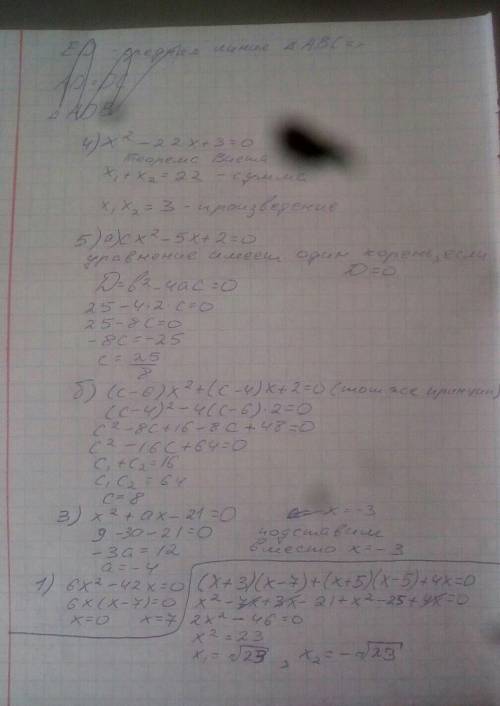 ED - средняя линия △ ABC =>
△ ADB
4) x² - 22x + 3 = 0
Теорема Виета
x₁ + x₂ = 22 - сумма
x₁ x₂ = 3 - произведение
5) а) cx² - 5x + 2 = 0
уравнение имеет один корень, если
D = 0
D = b² - 4ac = 0
25 - 4·2·c = 0
25 - 8c = 0
-8c = -25
c = 25/8
б) (c-6)x² + (c-4)x + 2 = 0 (тот же принцип)
(c-4)² - 4(c-6)·2 = 0
c² - 8c + 16 - 8c + 48 = 0
c² - 16c + 64 = 0
c₁ + c₂ = 16
c₁ c₂ = 64
c = 8
3) x² + ax - 21 = 0 x = -3
9 - 3a - 21 = 0 подставим
-3a = 12 вместо x = -3
a = -4
1) 6x² - 42x = 0
6x(x-7) = 0
x = 0 x = 7
(x+3)(x-7) + (x+5)(x-5) + 4x = 0
x² - 7x + 3x - 21 + x² - 25 + 4x = 0
2x² - 46 = 0
x² = 23
x₁ = √23, x₂ = -√23